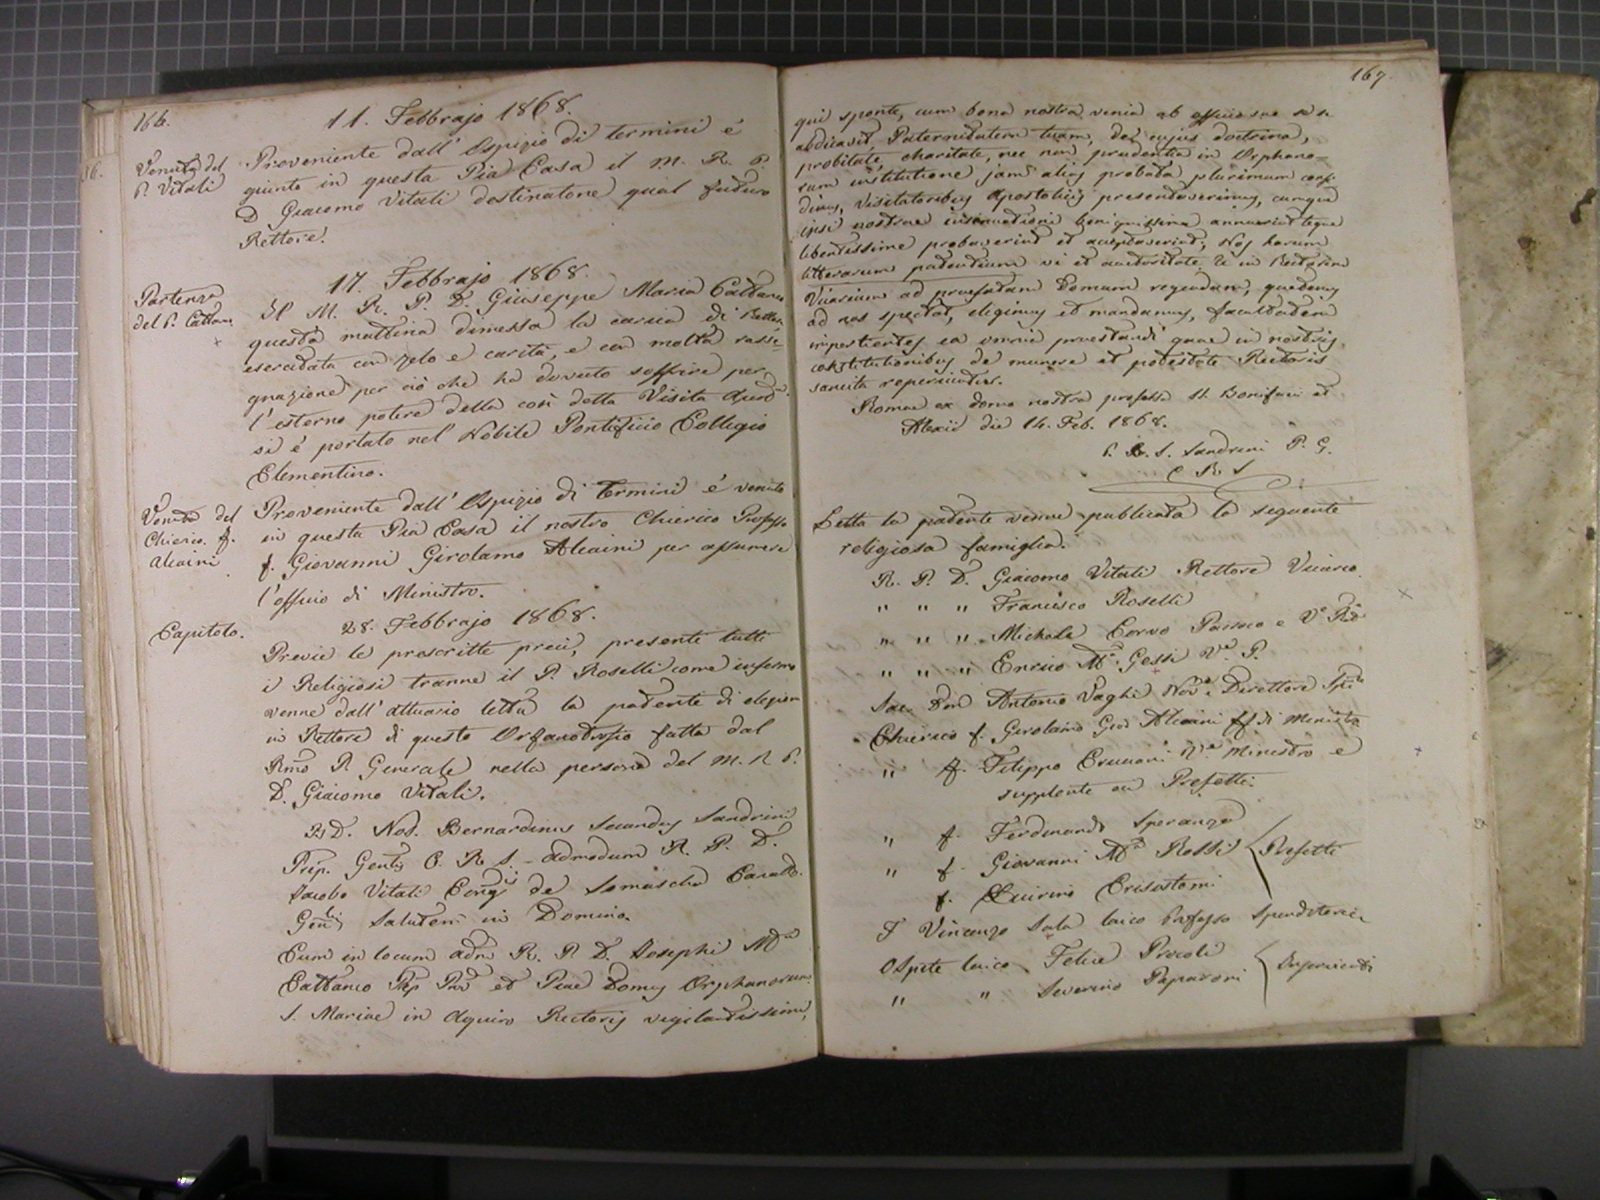 166.
11. Febbrajo 1868.
Venuta del
P. Vitali
Proveniente dall' Ospizio di termini è
giunto in questa Pia Casa il M. R. P.
D Giacomo Vitali destinatone qual futuro
Rettore.
17. Febbrajo 1868.
Partenza
del P. Cattan.
Il M. R. P. D. Giuseppe Maria Cattaneo
questa mattina dimessa la carica di Rettor.
esercitata con zelo e carità, e con molta rasse-
gnazione per ciò che ha dovuto soffrire per
l'esterno potere della così detta Visita Apost.
si è portato nel Nobile Pontificio Collegio
Clementino.
Venuta del
Chierico f.
Alcaini
Proveniente dall' Ospizio di Termini è venuto
in questa Pia Casa il nostro Chierico Professo
f. Giovanni Girolamo Alcaini per assumere
l'officio di Ministro.
28. Febbrajo 1868.
Capitolo.
Previe le prescritte preci, presente tutti
i Religiosi tranne il P. Roselli come infermo
venne dall' attuario letta la patente di elezion
in Rettore di questo Orfanotrofio fatta dal
Rmo P. Generale nella persona del M. R. P.
D. Giacomo Vitali.
Nos. Bernardinus Secundus Sandrini
Prep. Genlis C. R. S. admodum R. P. D.
Jacobo Vitali Congis de Somascha
Salutem in Domino
Cum in locum adm R. P. D. Josephi Ma
Cattaneo Prep Prov et Piae Domus Orphanorum
S. Mariae in Aquiro Rectoris vigilantissimi,
167.
qui sponte, cum bona nostra venia ab officio suo se se
abdicavit, Paternitatem tuam, de cujus doctrina,
probitate, charitate, nec non prudentia in Orphano-
rum institutione jam alias probata plurimum confi-
dimus, Visitatoribus Apostolicis presentaverimus, cumque
ipsi nostrae insinuationi benignissime annuerint teque
libentissime probaverint et acceptaverint, Nos harum
litterarum patentium vi et auctoritate Te in Rectorem
Vicarium ad praefatam Domum regendam, quatenus
ad nos spectat, eligimus et mandamus, facultatem
impertientes ea omnia praestandi quae in nostris
constitutionibus de munere et potestate Rectoris
sancita reperiuntur.
Romae ex domo nostra professa SS. Bonifacii et
Alexii die 14. Feb. 1868.
S. Sandrini P. G.
C R S
Letta la patente venne pubblicata la seguente
religiosa famiglia.
R. P. D. Giacomo Vitali Rettore Vicario
" " " Francesco Roselli
" " " Michele Corvo Parroco e Ve
" " " Enrico Ma. Gessi Ve. P.
Sac. Don Antonio Vaghi Direttore
Chierico f. Girolamo Gio Alcaini ff. di Ministro
" f. Filippo Ministro e
supplente ai Prefetti.
" f. Ferdinando Speranza
" f. Giovanni Ma Rossi } Prefetti
f. Quirino Crisostomi
F Vincenzo Sala laico Professo Spenditore
Ospite laico Felice Procoli
" " Severino Paparoni } Inservienti